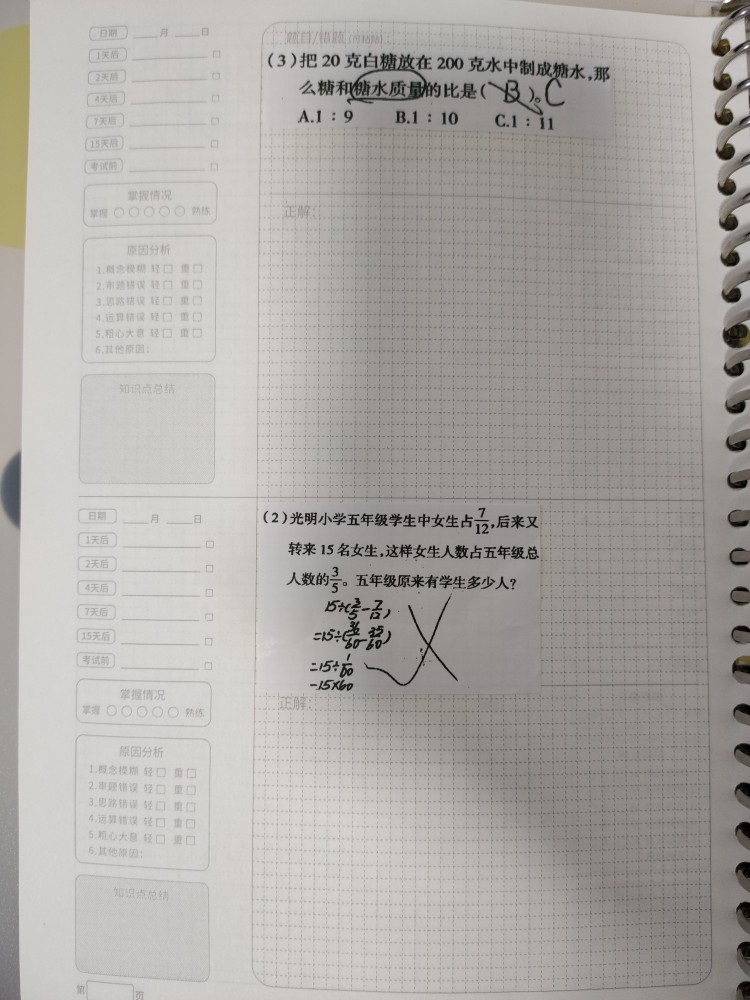 日期 ___月 ___日
1天后
2天后
4天后
7天后
15天后
考试前
掌握情况
掌握 ○○○○○ 熟练
原因分析
1.概念模糊 轻□ 重□
2.审题错误 轻□ 重□
3.思路错误 轻□ 重□
4.运算错误 轻□ 重□
5.粗心大意 轻□ 重□
6.其他原因:
知识点总结
(3)把 20 克白糖放在 200 克水中制成糖水,那
么糖和糖水质量的比是( B )。C
A.1:9 B.1:10 C.1:11
正解:
日期 ___月 ___日
1天后
2天后
4天后
7天后
15天后
考试前
掌握情况
掌握 ○○○○○ 熟练
原因分析
1.概念模糊 轻□ 重□
2.审题错误 轻□ 重□
3.思路错误 轻□ 重□
4.运算错误 轻□ 重□
5.粗心大意 轻□ 重□
6.其他原因:
知识点总结
(2)光明小学五年级学生中女生占7/12,后来又
转来 15 名女生,这样女生人数占五年级总
人数的3/5。五年级原来有学生多少人?
15÷(3/5-7/12)
=15÷(36/60-35/60)
=15÷1/60
=15×60
正解:
第 页